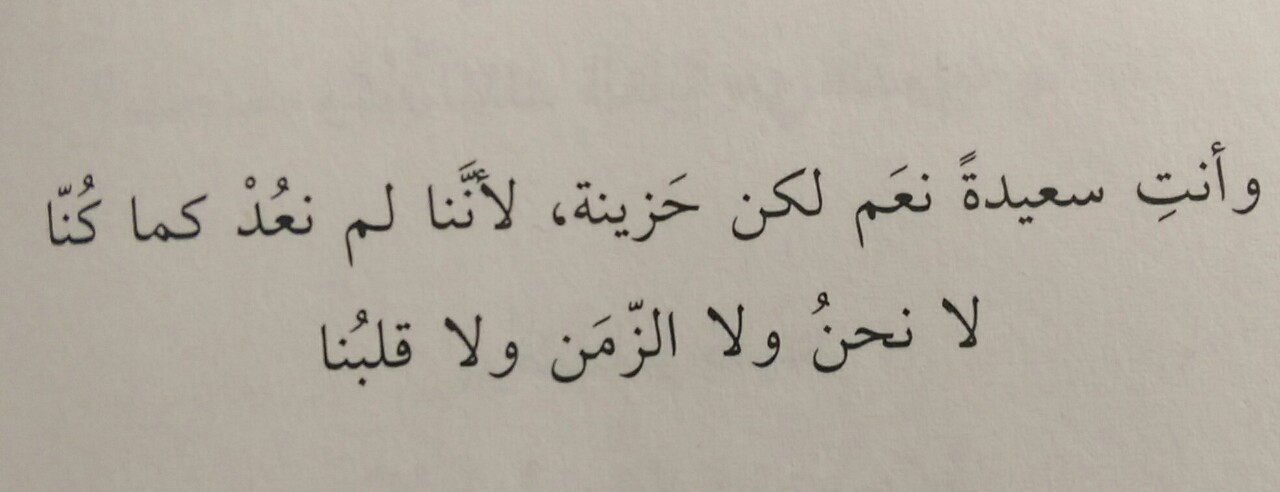 وأنتِ سعيدةً نعَم لكن حَزينة، لأنَّنا لم نعُدْ كما كُنّا
لا نحنُ ولا الزّمَن ولا قلبُنا